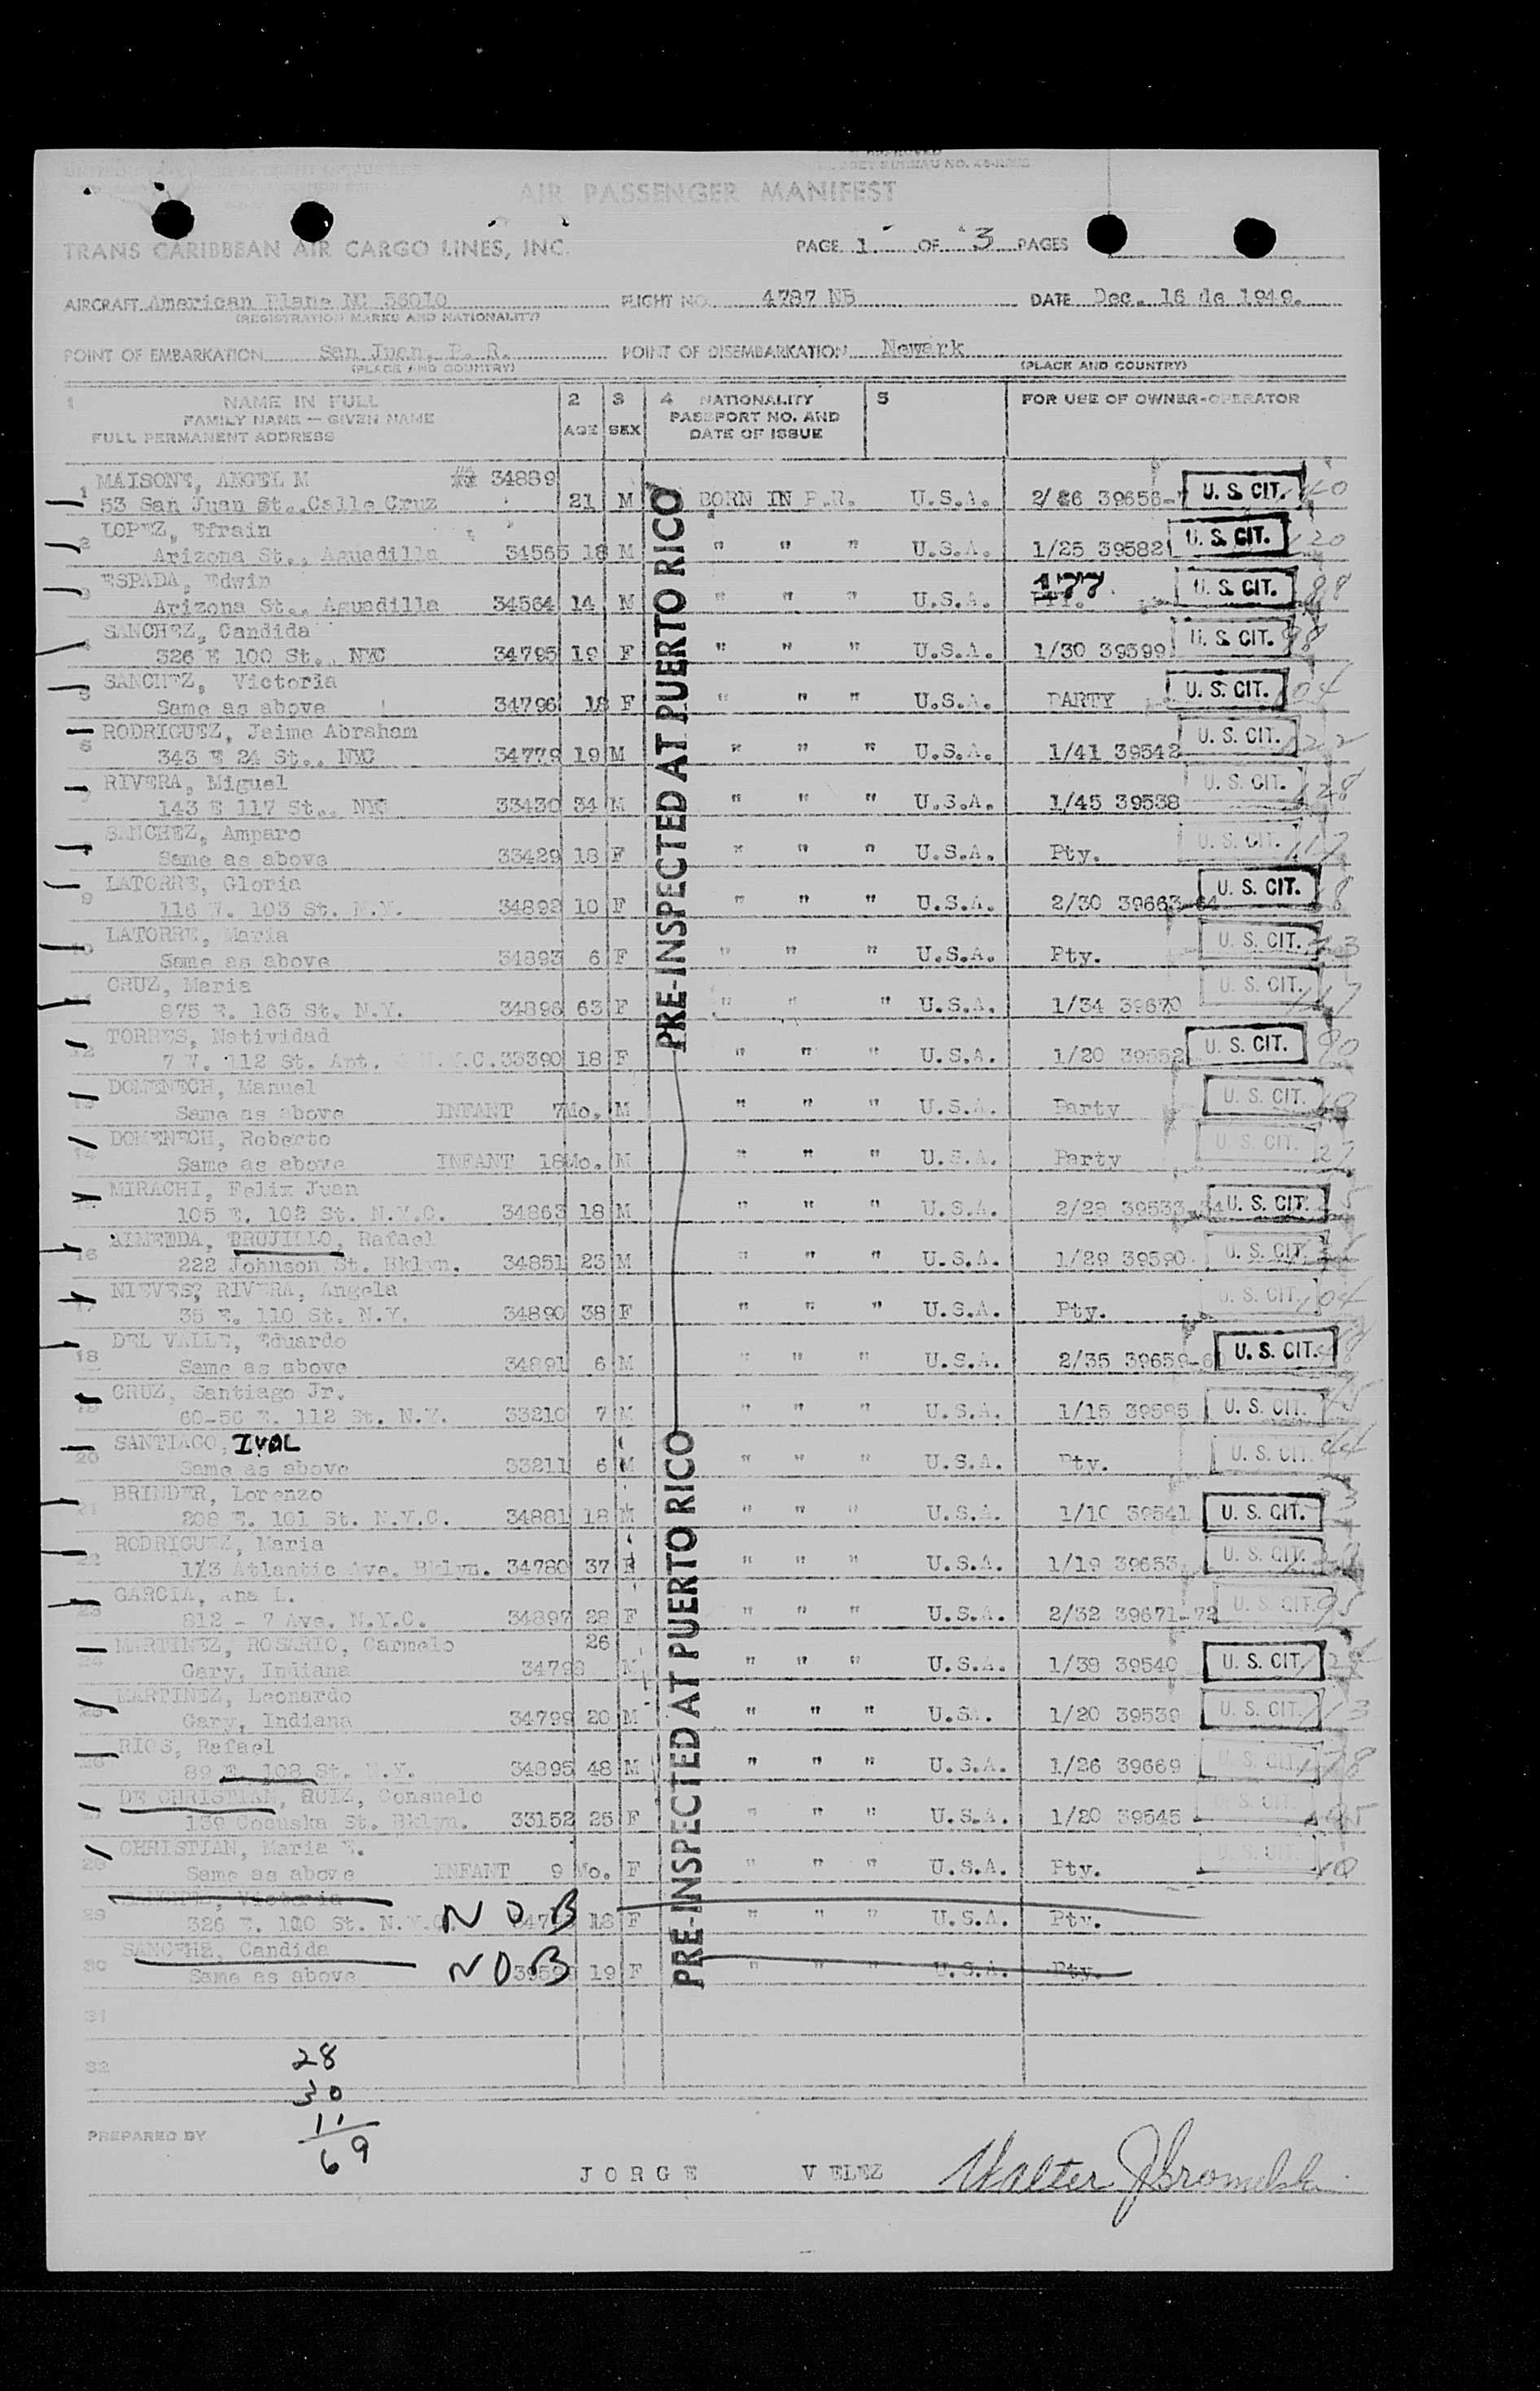 AIR PASSENGER MANIFEST
TRANS CARIBBEAN AIR CARGO LINES, INC.
PAGE 1 OF 3 PAGES
AIRCRAFT American Plane NC 56010 FLIGHT NO. 4787 NB DATE Dec. 16 de 1949.
(REGISTRATION MARKS AND NATIONALITY)
POINT OF EMBARKATION San Juan, P. R. POINT OF DISEMBARKATION Newark
(PLACE AND COUNTRY) (PLACE AND COUNTRY)
1 NAME IN FULL 2 3 4 NATIONALITY 5 FOR USE OF OWNER-OPERATOR
FAMILY NAME — GIVEN NAME AGE SEX PASSPORT NO. AND
FULL PERMANENT ADDRESS DATE OF ISSUE
PRE-INSPECTED AT PUERTO RICO
1 MAISONT, ANGEL M 34889
53 San Juan St., Calle Cruz 21 M BORN IN P.R. U.S.A. 2/26 39656- U. S. CIT.
2 LOPEZ, Efrain
Arizona St., Aguadilla 34565 18 M " " " U.S.A. 1/25 39582 U. S. CIT. 120
3 ESPADA, Edwin 177
Arizona St., Aguadilla 34564 14 M " " " U.S.A. U. S. CIT. 88
SANCHEZ, Candida
326 E 100 St., NYC 34795 19 F " " " U.S.A. 1/30 39599 U. S. CIT. 98
5 SANCHEZ, Victoria
Same as above 34796 18 F " " " U.S.A. PARTY U. S. CIT. 104
6 RODRIGUEZ, Jaime Abraham
343 E 24 St., NYC 34779 19 M " " " U.S.A. 1/41 39542 U. S. CIT. 122
7 RIVERA, Miguel
143 E 117 St., NYC 33430 34 M " " " U.S.A. 1/45 39538 U. S. CIT. 128
SANCHEZ, Amparo
Same as above 33429 18 F " " " U.S.A. Pty. U. S. CIT. 117
9 LATORRE, Gloria
116 W. 103 St. N.Y. 34892 10 F " " " U.S.A. 2/30 39663-64 U. S. CIT.
10 LATORRE, Maria
Same as above 34893 6 F " " " U.S.A. Pty. U. S. CIT.
CRUZ, Maria
875 E. 163 St. N.Y. 34896 63 F " " " U.S.A. 1/34 39670 U. S. CIT. 117
12 TORRES, Natividad
7 W. 112 St. Apt. 33390 18 F " " " U.S.A. 1/20 39552 U. S. CIT. 90
13 DOMENECH, Manuel
Same as above INFANT 7Mo. M " " " U.S.A. Party U. S. CIT.
14 DOMENECH, Roberto
Same as above INFANT 18Mo. M " " " U.S.A. Party U. S. CIT. 27
MIRACHI, Felix Juan
105 E. 102 St. N.Y.C. 34863 18 M " " " U.S.A. 2/28 39533-34 U. S. CIT.
16 ALMEEDA, TRUJILLO, Rafael
222 Johnson St. Bklyn. 34851 23 M " " " U.S.A. 1/29 39590 U. S. CIT.
17 NIEVES, RIVERA, Angela
35 E. 110 St. N.Y. 34890 38 F " " " U.S.A. Pty. U. S. CIT. 104
18 DEL VALLE, Eduardo
Same as above 34891 6 M " " " U.S.A. 2/35 39659-6 U. S. CIT.
19 CRUZ, Santiago Jr.
60-56 E. 112 St. N.Y. 33210 7 M " " " U.S.A. 1/15 39595 U. S. CIT.
20 SANTIAGO, IVAL
Same as above 33211 6 M " " " U.S.A. Pty. U. S. CIT. 44
21 BRINDER, Lorenzo
208 E. 101 St. N.Y.C. 34881 18 M " " " U.S.A. 1/10 39541 U. S. CIT.
22 RODRIGUEZ, Maria
113 Atlantic Ave. Bklyn. 34780 37 F " " " U.S.A. 1/19 39653 U. S. CIT.
23 GARCIA, Ana L.
812 - 7 Ave. N.Y.C. 34897 28 F " " " U.S.A. 2/32 39671-72 U. S. CIT. 95
24 MARTINEZ, ROSARIO, Carmelo 26
Gary, Indiana 34798 M " " " U.S.A. 1/38 39540 U. S. CIT.
25 MARTINEZ, Leonardo
Gary, Indiana 34799 20 M " " " U.SA. 1/20 39539 U. S. CIT. 113
26 RIOS, Rafael
89 E. 108 St. N.Y. 34895 48 M " " " U.S.A. 1/26 39669 U. S. CIT. 178
27 DE CHRISTIAN, RUIZ, Consuelo
139 Cocuska St. Bklyn. 33152 25 F " " " U.S.A. 1/20 39545 U. S. CIT.
28 CHRISTIAN, Maria E.
Same as above INFANT 9 Mo. F " " " U.S.A. Pty. U. S. CIT. 10
SANCHEZ, Victoria
29 326 E. 100 St. N.Y.C. NOB 18 F " " " U.S.A. Pty.
SANCEHZ, Candida
30 Same as above NOB 19 F " " " U.S.A. Pty.
PRE-INSPECTED AT PUERTO RICO
31
32
28
30
11
69
PREPARED BY
JORGE VELEZ Walter